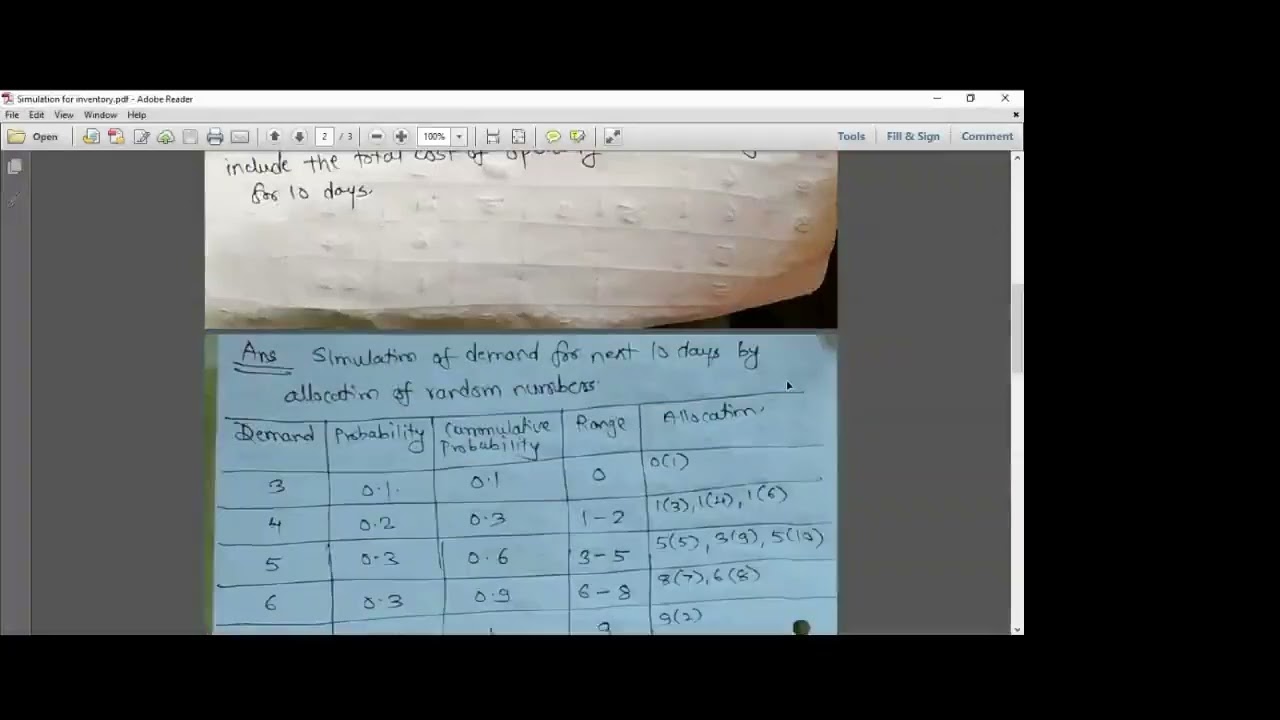 Simulation for inventory.pdf - Adobe Reader
File Edit View Window Help
Open 2 / 3 100% Tools Fill & Sign Comment
include the total cost of
for 10 days.
Ans Simulation of demand for next 10 days by
allocation of random numbers.
Demand Probability Cummulative Probability Range Allocation.
3 0.1 0.1 0 0(1)
4 0.2 0.3 1-2 1(3), 1(4), 1(6)
5 0.3 0.6 3-5 5(5), 3(9), 5(10)
6 0.3 0.9 6-8 8(7), 6(8)
1 9 9(2)